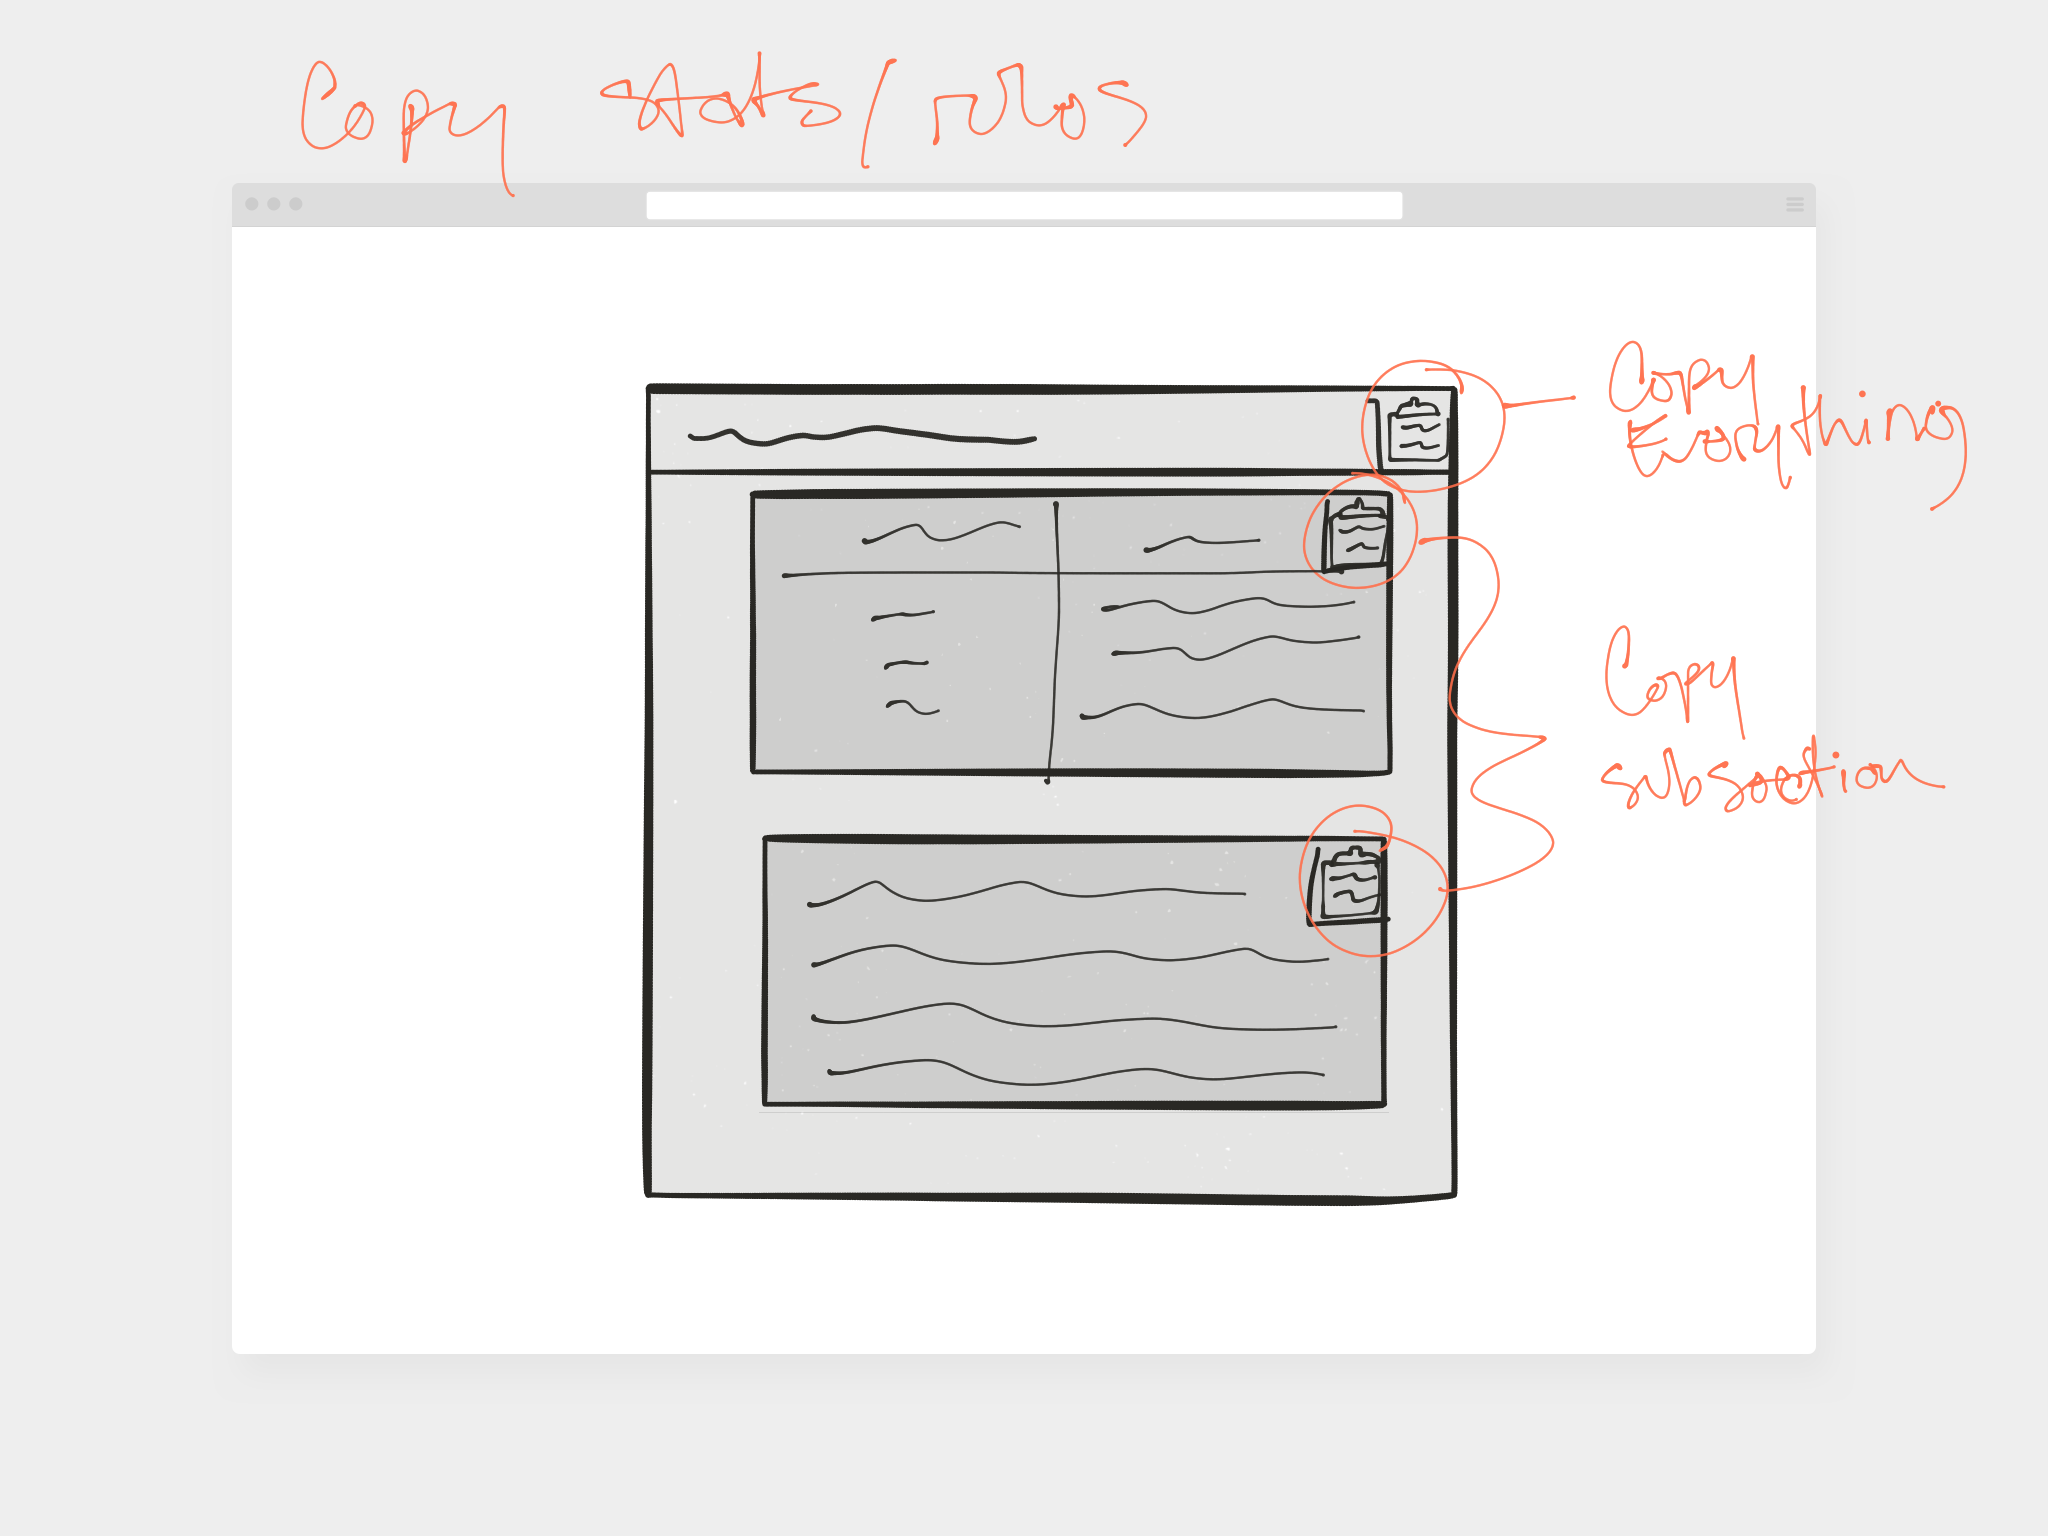 Copy stats/rules
Copy
Everything
Copy
subsection